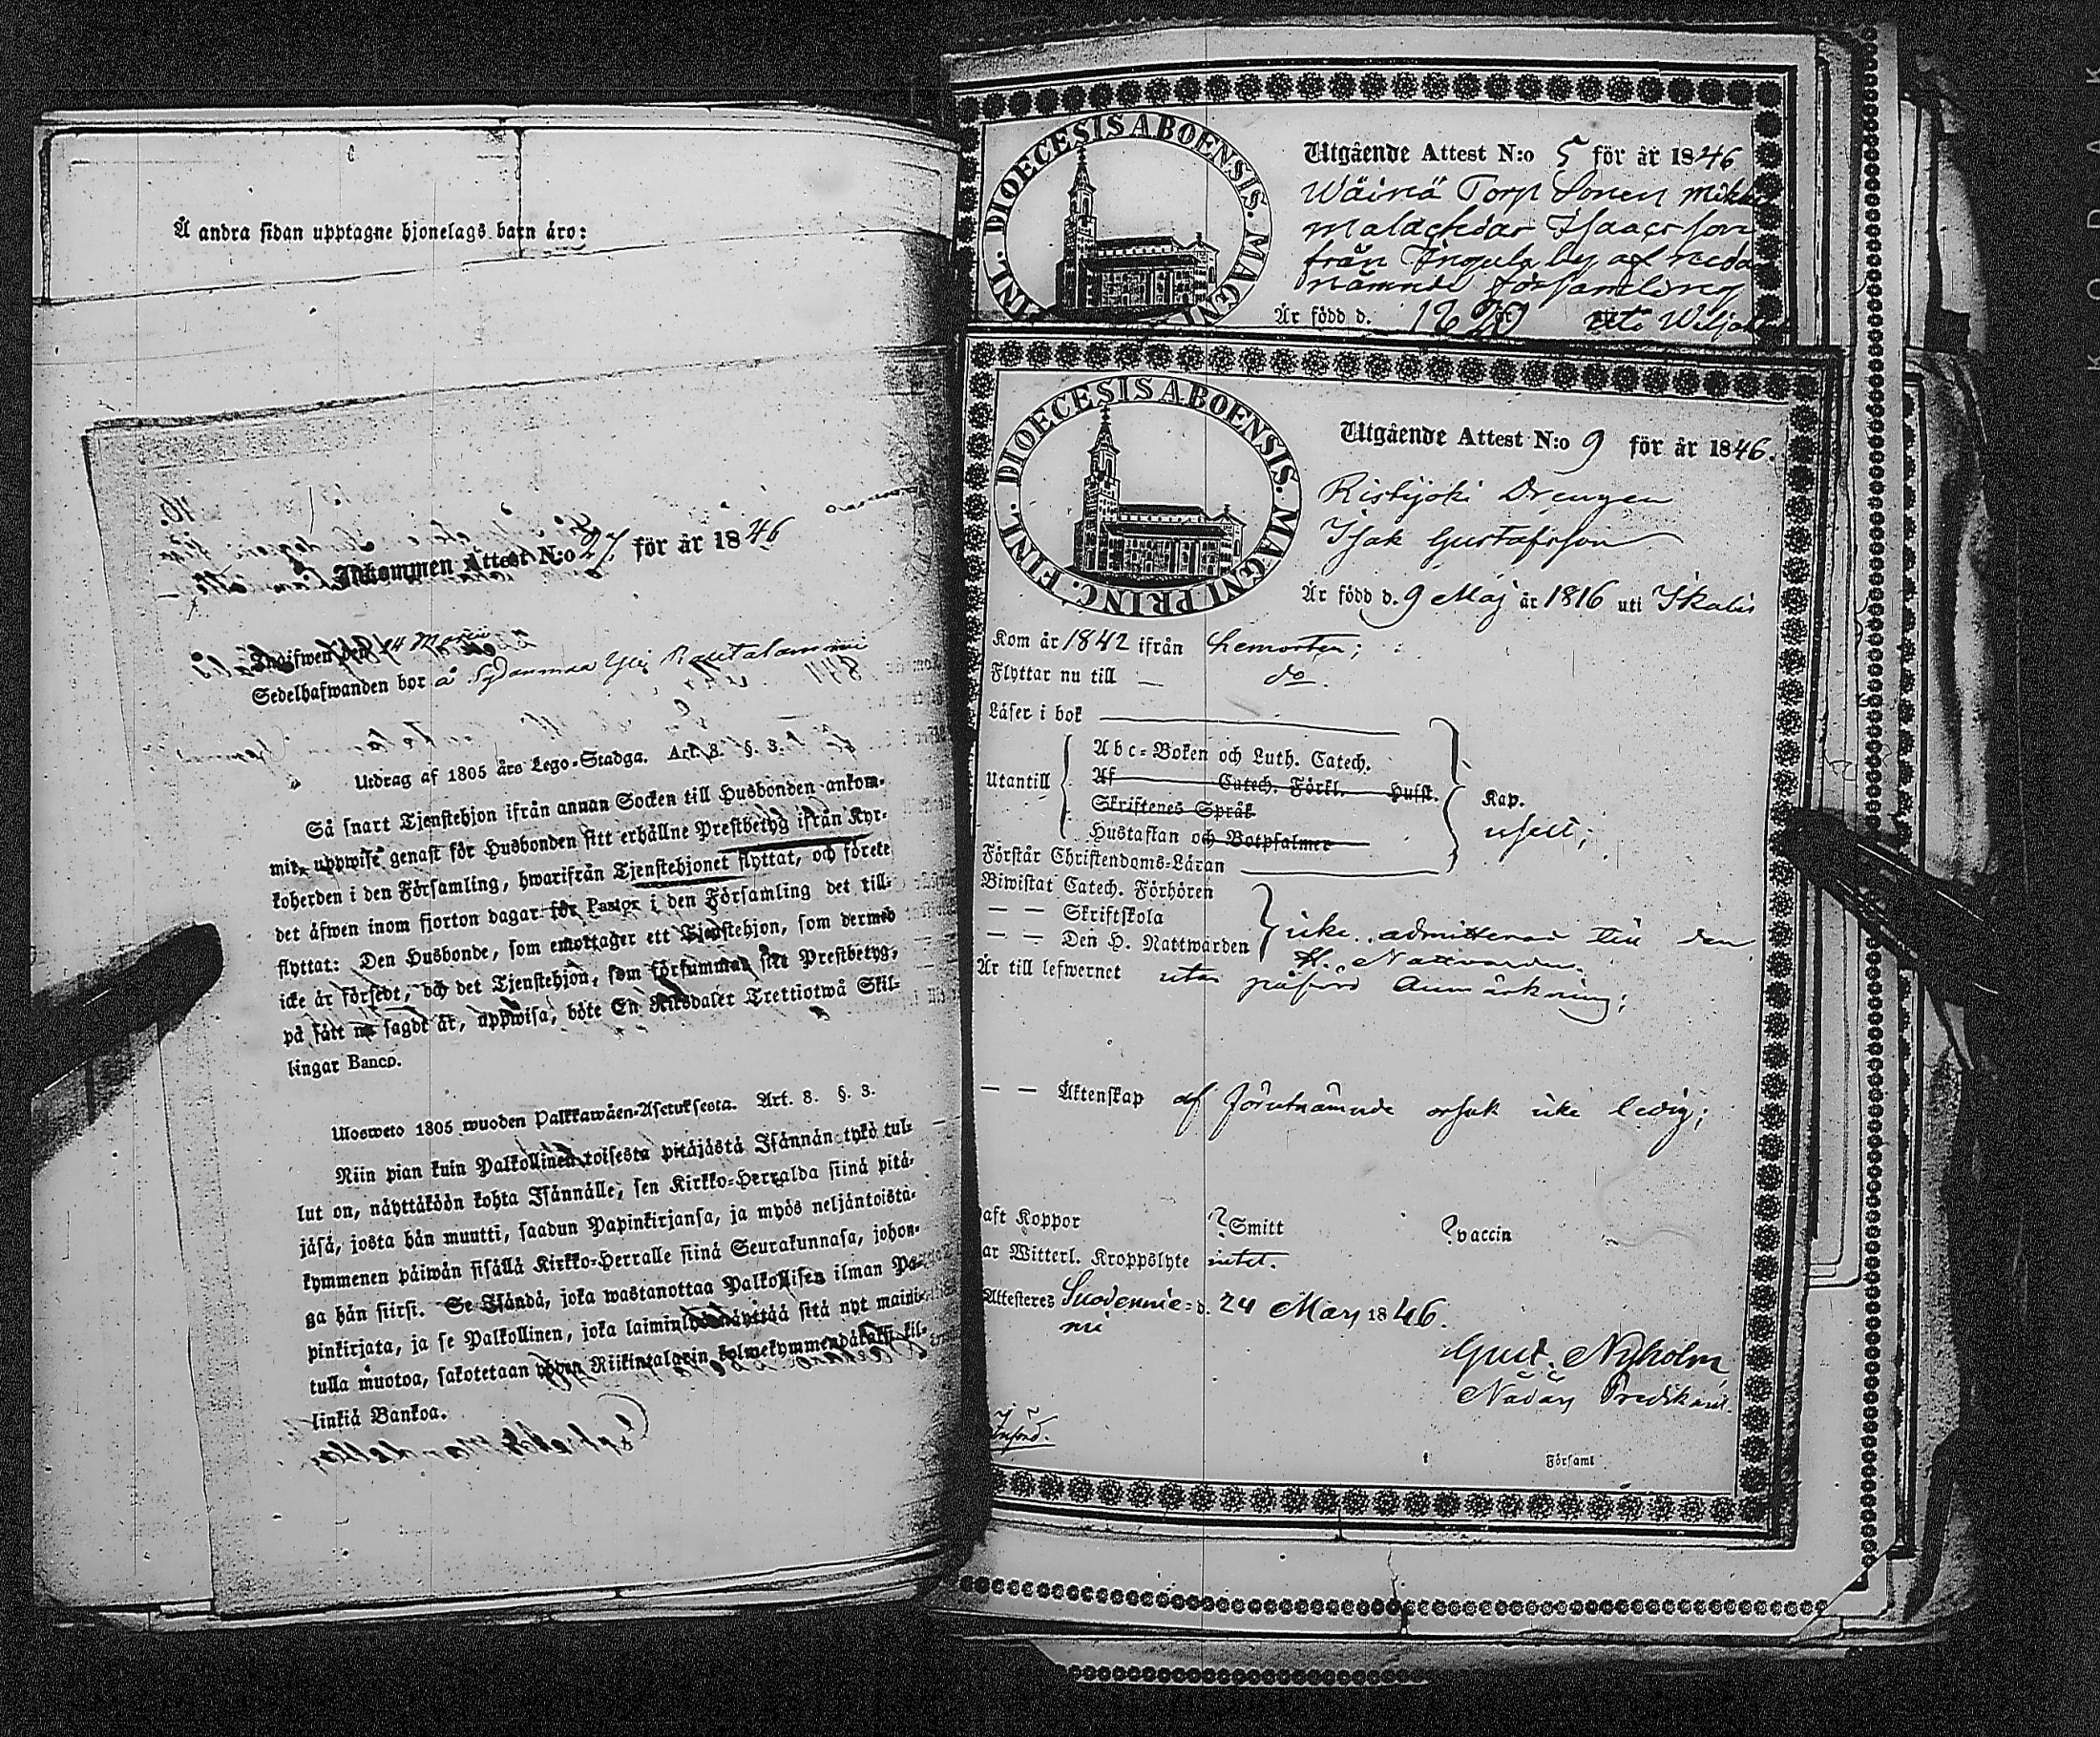 Å andra sidan upptagne hjonelags barn äro:
Inkommen Attest N:o 27 för år 1846
Ingifwen den 14 Maris
Sedelhafwanden bor å Sydänmaa Rautalammi
Utdrag af 1805 års Lego-Stadga. Art. 8. §. 3.
Så snart Tjenstehjon ifrån annan Socken till Husbonden ankom-
mit, uppwise genast för Husbonden sitt erhållne Prestbetyg ifrån Kyr-
koherden i den Församling, hwarifrån Tjenstehjonet flyttat, och förete
det äfwen inom fjorton dagar för Pastor i den Församling det till-
flyttat: Den Husbonde, som emottager ett Tjenstehjon, som dermed
icke är försedt, och det Tjenstehjon, som försummar sitt Prestbetyg,
på sätt nu sagdt är, uppwisa, böte En Riksdaler Trettiotwå Skil-
lingar Banco.
Ulosweto 1805 wuoden Palkkawäen-Asetuksesta. Art. 8. §. 3.
Niin pian kuin Palkollinen toisesta pitäjästä Isännän tykö tul-
lut on, näyttäköön kohta Isännälle, sen Kirkko-Herralda siinä pitä-
jäsä, josta hän muutti, saadun Papinkirjansa, ja myös neljäntoista-
kymmenen päiwän sisällä Kirkko-Herralle siinä Seurakunnasa, johon-
ga hän siirsi. Se Isändä, joka wastanottaa Palkollisen ilman Pa-
pinkirjata, ja se Palkollinen, joka laiminlyö näyttää sitä nyt maini-
tulla muotoa, sakotetaan yhden Riikintalarin kolmekymmendäkaksi kil-
linkiä Bankoa.
DIOECESIS ABOENSIS. MAGNI FINL.
Utgående Attest N:o 5 för år 1846
Wäinä Torp Sonen Mikke
Malachias Isaacsson
från Ingula by af neda
nämnde församling
Är född d. 1820 uti
DIOECESIS ABOENSIS. MAGNI PRINC. FINL.
Utgående Attest N:o 9 för år 1846.
Ristijoki Drengen
Isak Gustafsson
Är född d. 9 Maj år 1816 uti Ikalis
Kom år 1842 ifrån Lemorten;
Flyttar nu till — do.
Läser i bok
Utantill
Abc-Boken och Luth. Catech.
Af Catech. Förkl. Husft.
Skriftenes Språk
Hustaflan och Botpsalmer
Kap.
uselt;
Förstår Christendoms-Läran
Biwistat Catech. Förhören
— — Skriftskola
— — Den H. Nattwarden
icke admitterad till den
H. Nattvarden.
Är till lefwernet utan påförd Anmärkning;
— — Äktenskap af förutnämnde orsak icke ledig;
aft Koppor ? Smitt ? vaccin
ar Witterl. Kroppslyte intet.
Attesteres Suodennie- d. 24 Mars 1846.
mi
Gust. Nyholm
Nådårs Predikant.
Införd.
Församl